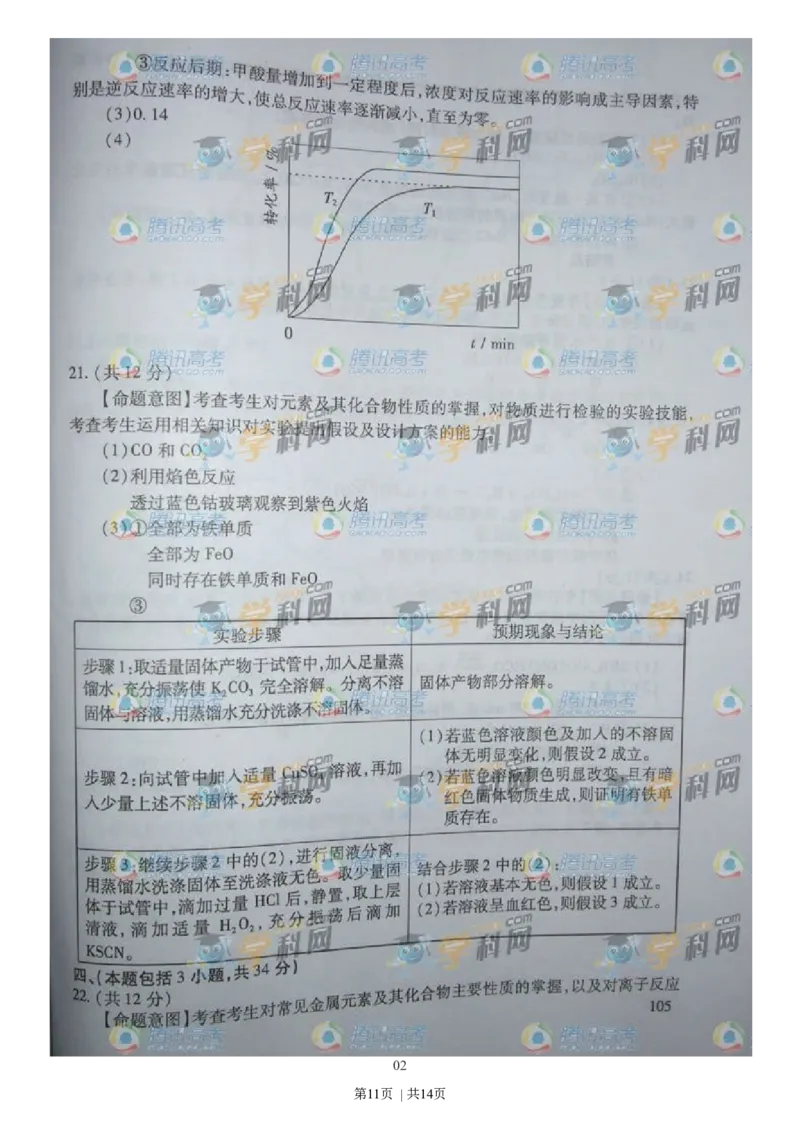 ③反应后期:甲酸量增加到一定程度后,浓度对反应速率的影响成主导因素,特
别是逆反应速率的增大,使总反应速率逐渐减小,直至为零。
(3)0.14
(4)
转化率/%
T₂
T₁
0
t / min
21.(共12分)
【命题意图】考查考生对元素及其化合物性质的掌握,对物质进行检验的实验技能,
考查考生运用相关知识对实验提出假设及设计方案的能力。
(1)CO和CO₂
(2)利用焰色反应
透过蓝色钴玻璃观察到紫色火焰
(3)①全部为铁单质
全部为FeO
同时存在铁单质和FeO
③
实验步骤 预期现象与结论
步骤1:取适量固体产物于试管中,加入足量蒸
馏水,充分振荡使K₂CO₃完全溶解。分离不溶
固体与溶液,用蒸馏水充分洗涤不溶固体。
固体产物部分溶解。
步骤2:向试管中加入适量CuSO₄溶液,再加
入少量上述不溶固体,充分振荡。
(1)若蓝色溶液颜色及加入的不溶固
体无明显变化,则假设2成立。
(2)若蓝色溶液颜色明显改变,且有暗
红色固体物质生成,则证明有铁单
质存在。
步骤3:继续步骤2中的(2),进行固液分离,
用蒸馏水洗涤固体至洗涤液无色。取少量固
体于试管中,滴加过量HCl后,静置,取上层
清液,滴加适量H₂O₂,充分振荡后滴加
KSCN。
结合步骤2中的(2):
(1)若溶液基本无色,则假设1成立。
(2)若溶液呈血红色,则假设3成立。
四、(本题包括3小题,共34分)
22.(共12分)
【命题意图】考查考生对常见金属元素及其化合物主要性质的掌握,以及对离子反应
105
02
第11页 | 共14页